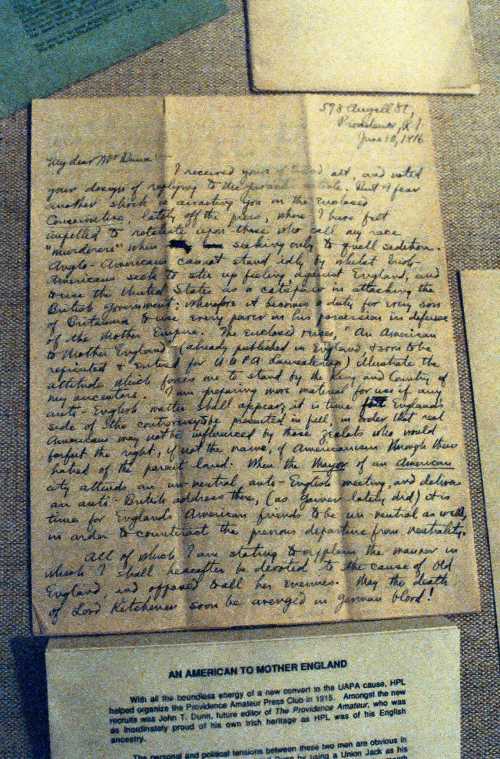 598 Angell St,
Providence, R.I.
June 10, 1916
My dear Mr Dunn:—
I received yours of ult, and noted
your design of replying to the article. But I fear
another shock is awaiting you in the enclosed
Conservative, lately off the press, where I have felt
impelled to retaliate upon those who call my race
"murderers" when seeking only to quell sedition.
Anglo-Americans cannot stand idly by whilst Irish-
Americans seek to stir up feeling against England, and
to use the United States as a catspaw in attacking the
British government; wherefore it becomes a duty for every son
of Britannia to use every power in his possession in defence
of the Mother Empire. The enclosed verses, "An American
to Mother England" (already published in England, & soon to be
reprinted & entered for U.A.P.A. Laureateship) illustrate the
attitude which forces me to stand by the King and Country of
my ancestors. I am preparing more material for use if any
anti-English matter shall appear; it is time England's
side of the controversy be presented in full, in order that real
Americans may not be influenced by those zealots who would
forfeit the right, if not the name, of Americanism through their
hatred of the parent land. When the Mayor of an American
city attends an un-neutral, anti-English meeting, and delivers
an anti-British address there, (as Gainer lately did) it is
time for England's American friends to be un-neutral as well,
in order to counteract the previous departure from neutrality.
All of which I am stating to explain the manner in
which I shall hereafter be devoted to the cause of Old
England, and opposed to all her enemies. May the death
of Lord Kitchener soon be avenged in German blood!
AN AMERICAN TO MOTHER ENGLAND
With all the boundless energy of a new convert to the UAPA cause, HPL
helped organize the Providence Amateur Press Club in 1915. Amongst the new
recruits was John T. Dunn, future editor of The Providence Amateur, who was
as inordinately proud of his own Irish heritage as HPL was of his English
ancestry.
The personal and political tensions between these two men are obvious in
by using a Union Jack as his